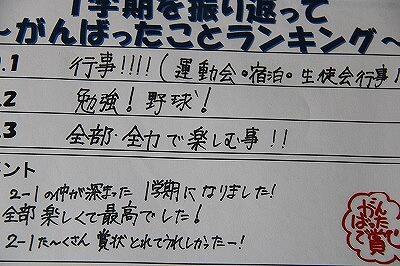 1学期を振り返って
～がんばったことランキング～
.1 行事!!!!(運動会・宿泊・生徒会行事
.2 勉強! 野球!
.3 全部・全力で楽しむ事!!
ント
2-1の仲が深まった1学期になりました!
全部楽しくて最高でした!
2-1た〜くさん賞状とれてうれしかったー!
がん
ばった
で賞